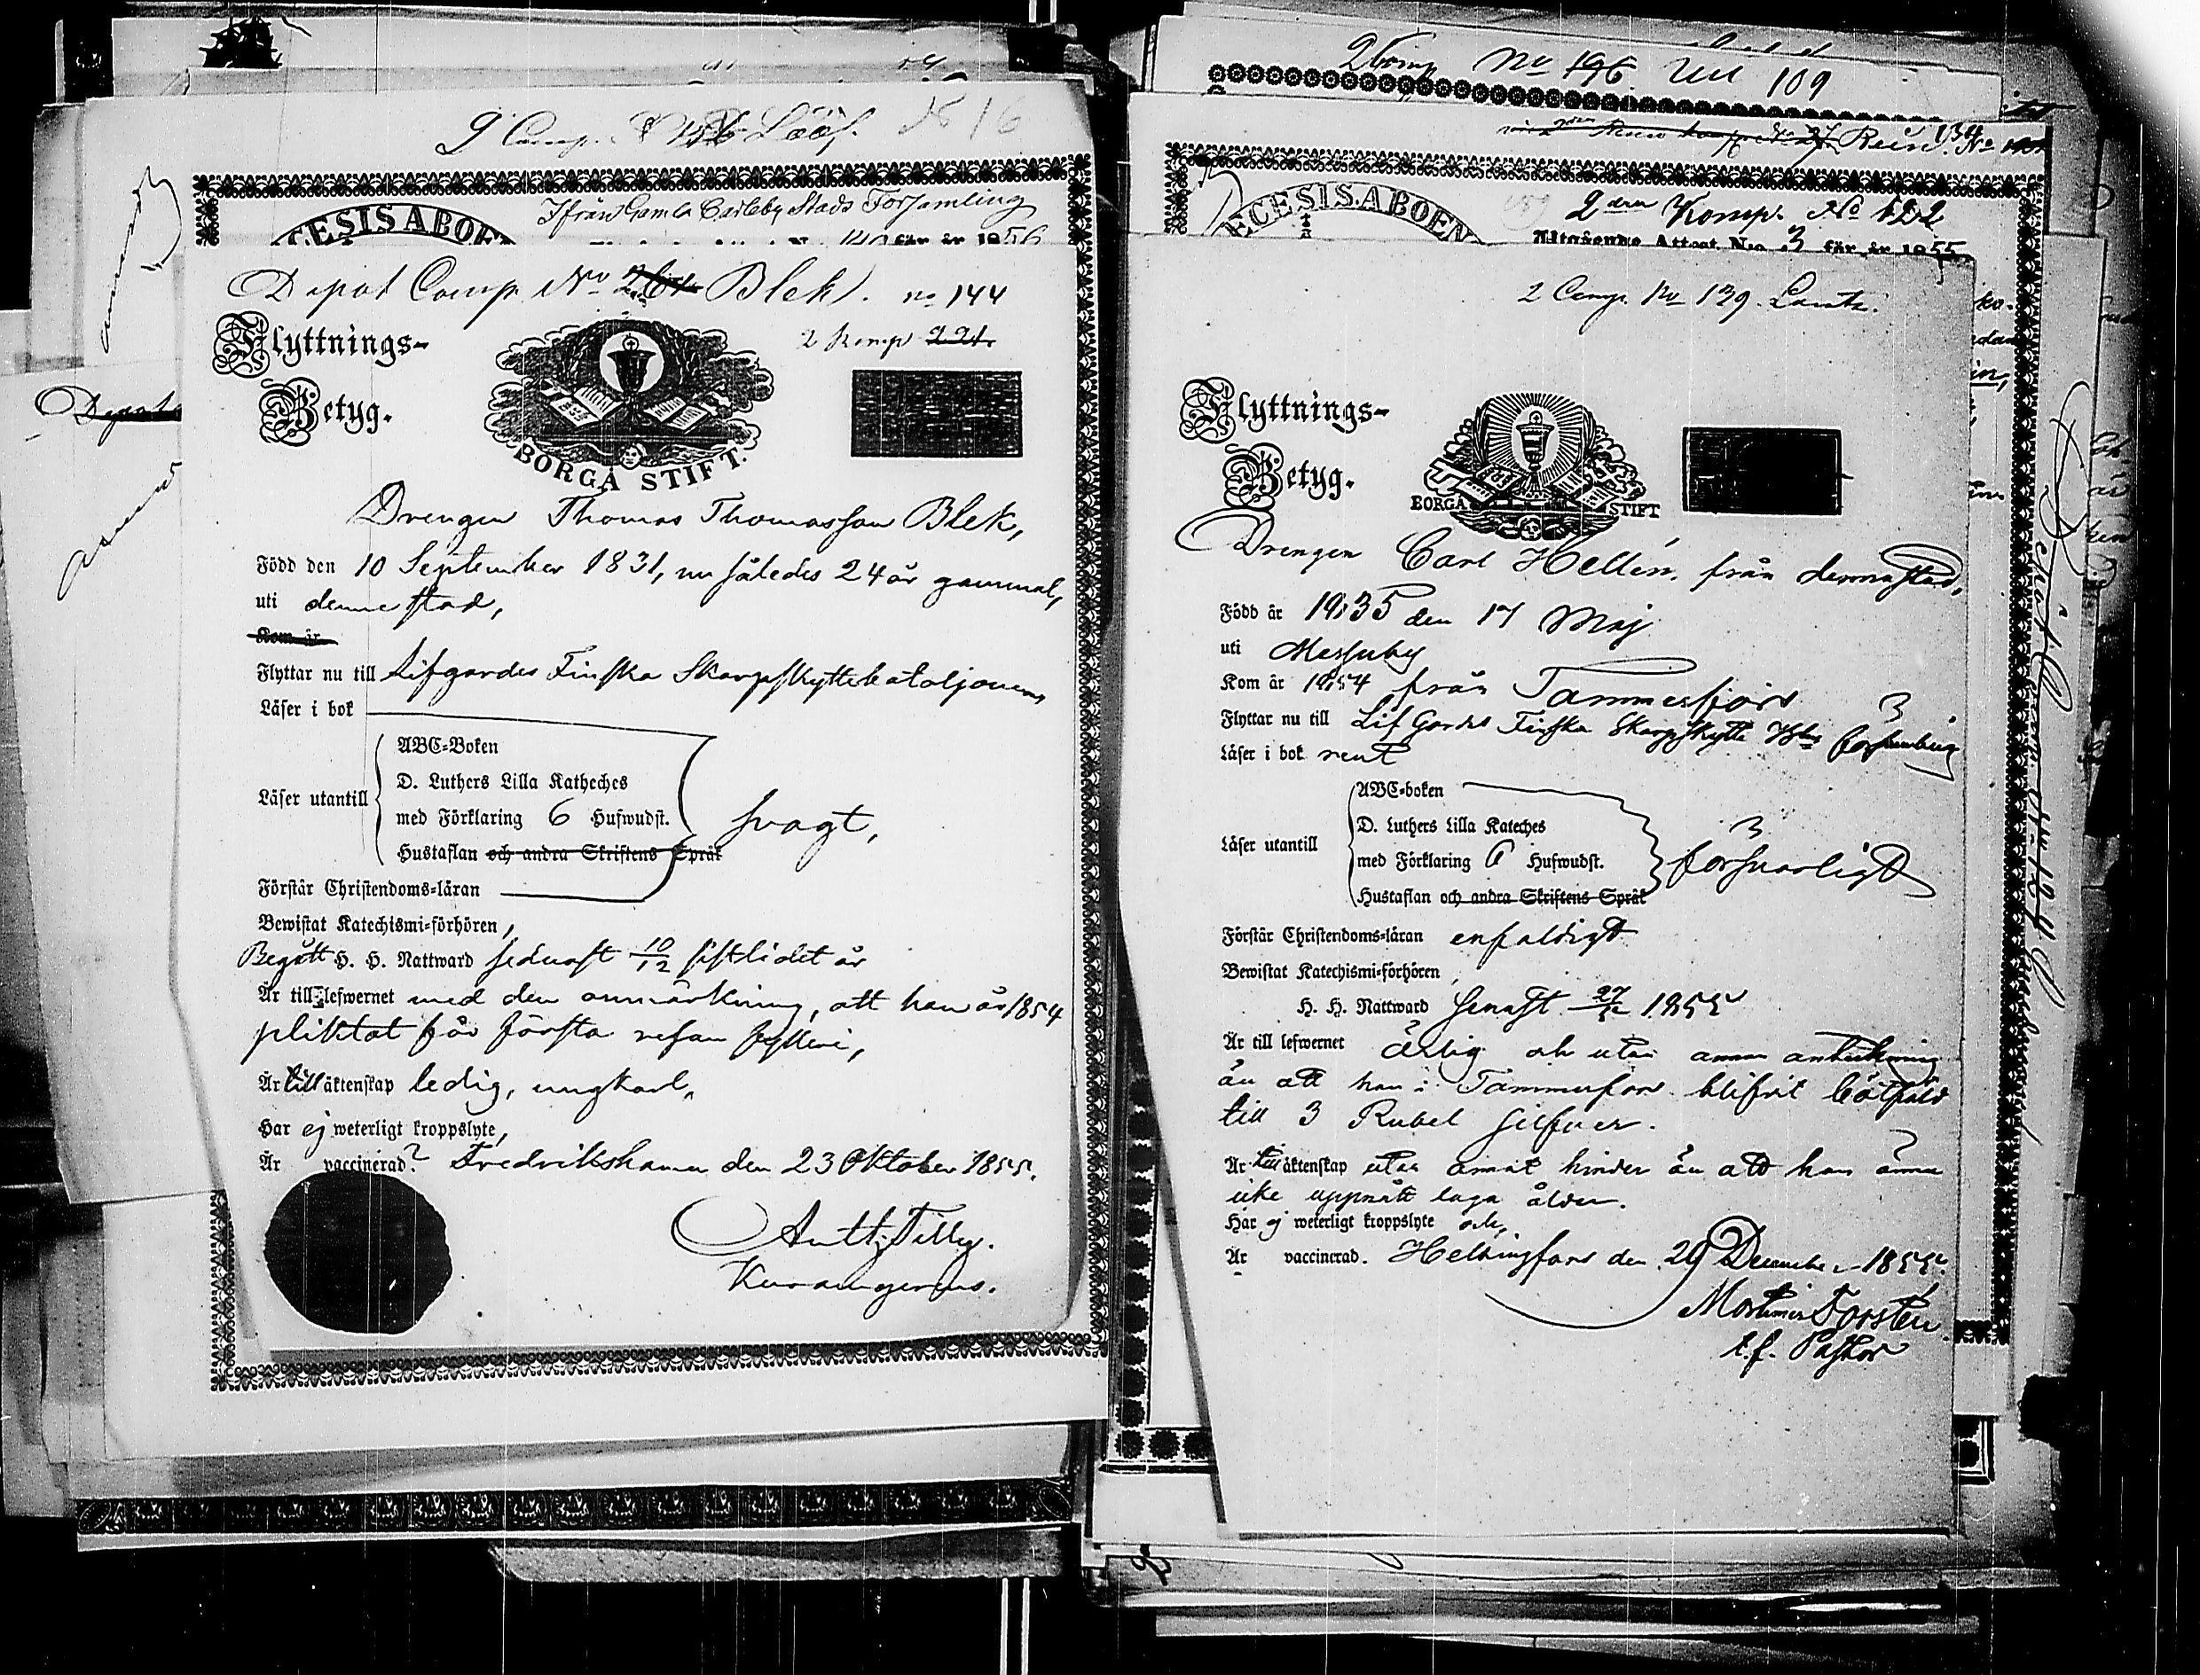 2 Comp. Lööf.
No 16
CESIS ABOEN
Ifrån Gamla Carleby Stads Församling
för år 1856
Depot Comp. No Blek. no 144
Flyttnings-
2 Komp 221.
Betyg.
BORGÅ STIFT.
Drengen Thomas Thomasson Blek,
Född den 10 September 1831, nu således 24 år gammal,
uti denne stad,
Kom år
Flyttar nu till Lifgardes Finska Skarpskyttebataljonen,
Läser i bok
ABC-Boken
D. Luthers Lilla Katheches
Läser utantill
med Förklaring 6 Hufwudst.
svagt,
Hustaflan och andra Skriftens Språk
Förstår Christendoms-läran
Bewistat Katechismi-förhören,
Begått H. H. Nattward sednast 10/12 sistlidet år
Är till lefwernet med den anmärkning, att han år 1854
pliktat för första resan fylleri,
Är till äktenskap ledig, ungkarl,
Har ej weterligt kroppslyte,
Är vaccinerad? Fredrikshamn den 23 Oktober 1855.
Depot
2 Komp No 196 109
ECESIS.ABOEN
2dra Komp. No 122
Utgående Attest No 3 för år 1855
2 Comp. No 139. Lantz.
Flyttnings-
Betyg.
BORGÅ STIFT
Drengen Carl Hellén, från denna stad,
Född år 1835 den 17 Maj
uti Messuby
Kom år 1854 från Tammerfors
Flyttar nu till Lif Gardes Finska Skarpskytte Btns församling
Läser i bok rent
ABC-boken
D. Luthers Lilla Kateches
Läser utantill
med Förklaring 6 Hufwudst.
försvarligt
Hustaflan och andra Skriftens Språk
Förstår Christendoms-läran enfaldigt
Bewistat Katechismi-förhören,
H. H. Nattward senast 1855
Är till lefwernet ärlig och utan annan anteckning
än att han i Tammerfors blifvit bötfäld
till 3 Rubel silfver.
Är till äktenskap utan annat hinder än att han ännu
icke uppnått laga ålder.
Har ej weterligt kroppslyte och,
Är vaccinerad. Helsingfors den 29 December 1855.
Mortimer Forstén
t.f. Pastor